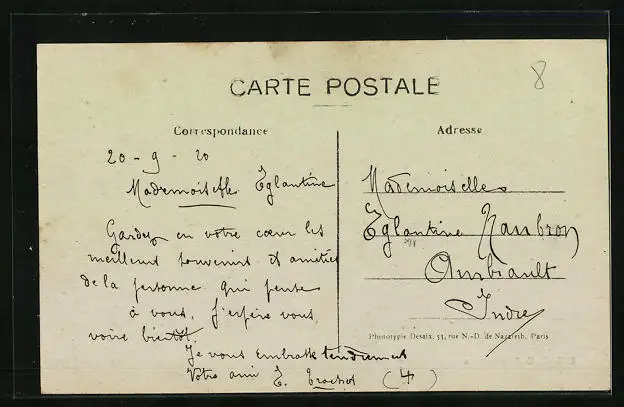 8
CARTE POSTALE
Correspondance
20-9-20
Mademoiselle Eglantine
Gardez en votre cœur les
meilleurs souvenirs et amitiés
de la personne qui pense
à vous. J'espère vous
voire bientôt.
Je vous embrasse tendrement
Votre ami E. (4)
Adresse
Mademoiselle
Eglantine
Ambrault
Indre
Phototypie Desaix, 53, rue N.-D. de Nazareth, Paris